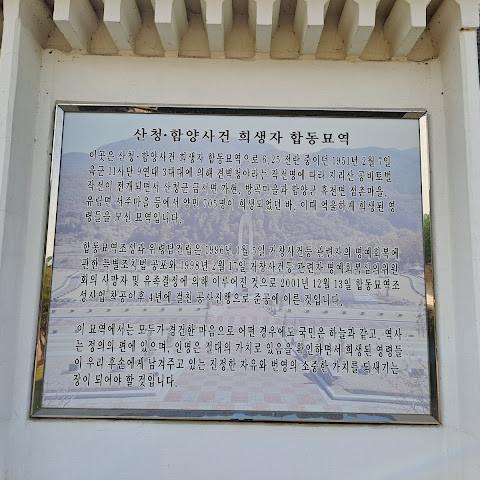 산청·함양사건 희생자 합동묘역
이곳은 산청·함양사건 희생자 합동묘역으로 6.25 전란 중이던 1951년 2월 7일
육군 11사단 9연대 3대대에 의해 견벽청야라는 작전명에 따라 지리산 공비토벌
작전이 전개되면서 산청군 금서면 가현, 방곡마을과 함양군 휴천면 점촌마을,
유림면 서주마을 등에서 양민 705명이 희생되었던 바, 이때 억울하게 희생된 영
령들을 모신 묘역입니다.
합동묘역조성과 위령탑건립은 1996년 1월 5일 거창사건등 관련자의 명예회복에
관한 특별조치법 공포와 1998년 2월 17일 거창사건등 관련자 명예회복심의위원
회의 사망자 및 유족결정에 의해 이루어진 것으로 2001년 12월 13일 합동묘역조
성사업 착공이후 4년에 걸친 공사진행으로 준공에 이른 것입니다.
이 묘역에서는 모두가 경건한 마음으로 어떤 경우에도 국민은 하늘과 같고, 역사
는 정의의 편에 있으며, 인명은 절대의 가치로 있음을 확인하면서 희생된 영령들
이 우리 후손에게 남겨주고 있는 진정한 자유와 번영의 소중한 가치를 되새기는
장이 되어야 할 것입니다.